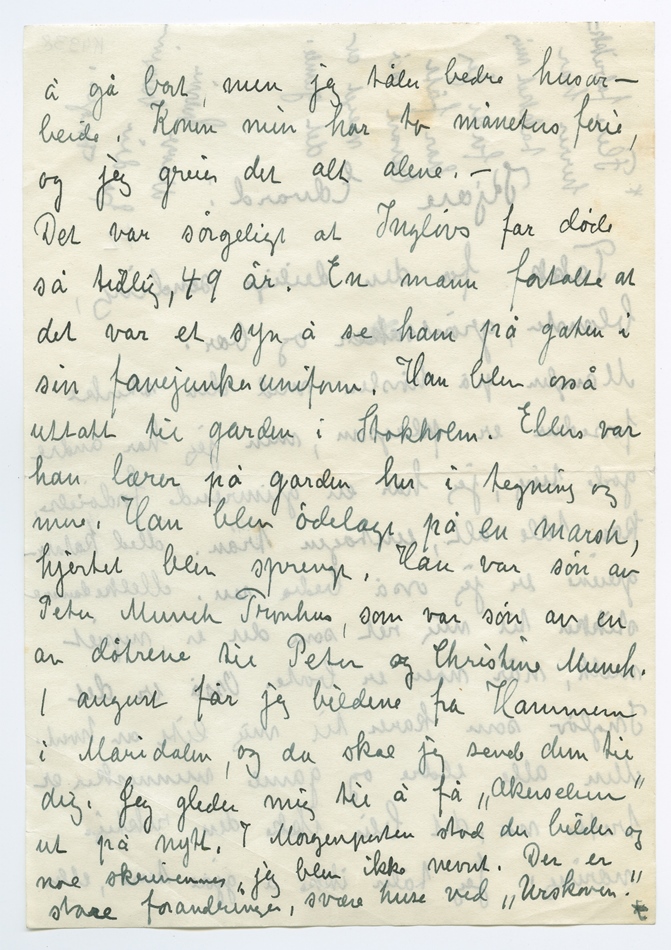 å gå bort, men jeg tåler bedre husar-
beide. Konen min har to måneters ferie,
og jeg greier det alt alene. –
Det var sørgeligt at Inglövs far døde
så tidlig, 49 år. En mann fortalte at
det var et syn å se ham på gaten i
sin fanejunkeruniform. Han blev også
uttatt til garden i Stokholm. Ellers var
han lærer på garden her i tegning og
mere. Han blev ödelagt på en marsh,
hjertet blev sprengt. Han var sön av
Peter Munch Tronhus, som var sön av en
av dötrene til Peter og Christine Munch.
I august får jeg bildene fra Hammern
i Maridalen, og da skal jeg sende dem til
dig. Jeg gleder mig til å få „Akerselven"
ut på nytt. I Morgenposten stod der bilder og
noe skrivennes, jeg blev ikke nevnt. Der er
store forandringer, svære huse ved „Urskoven."